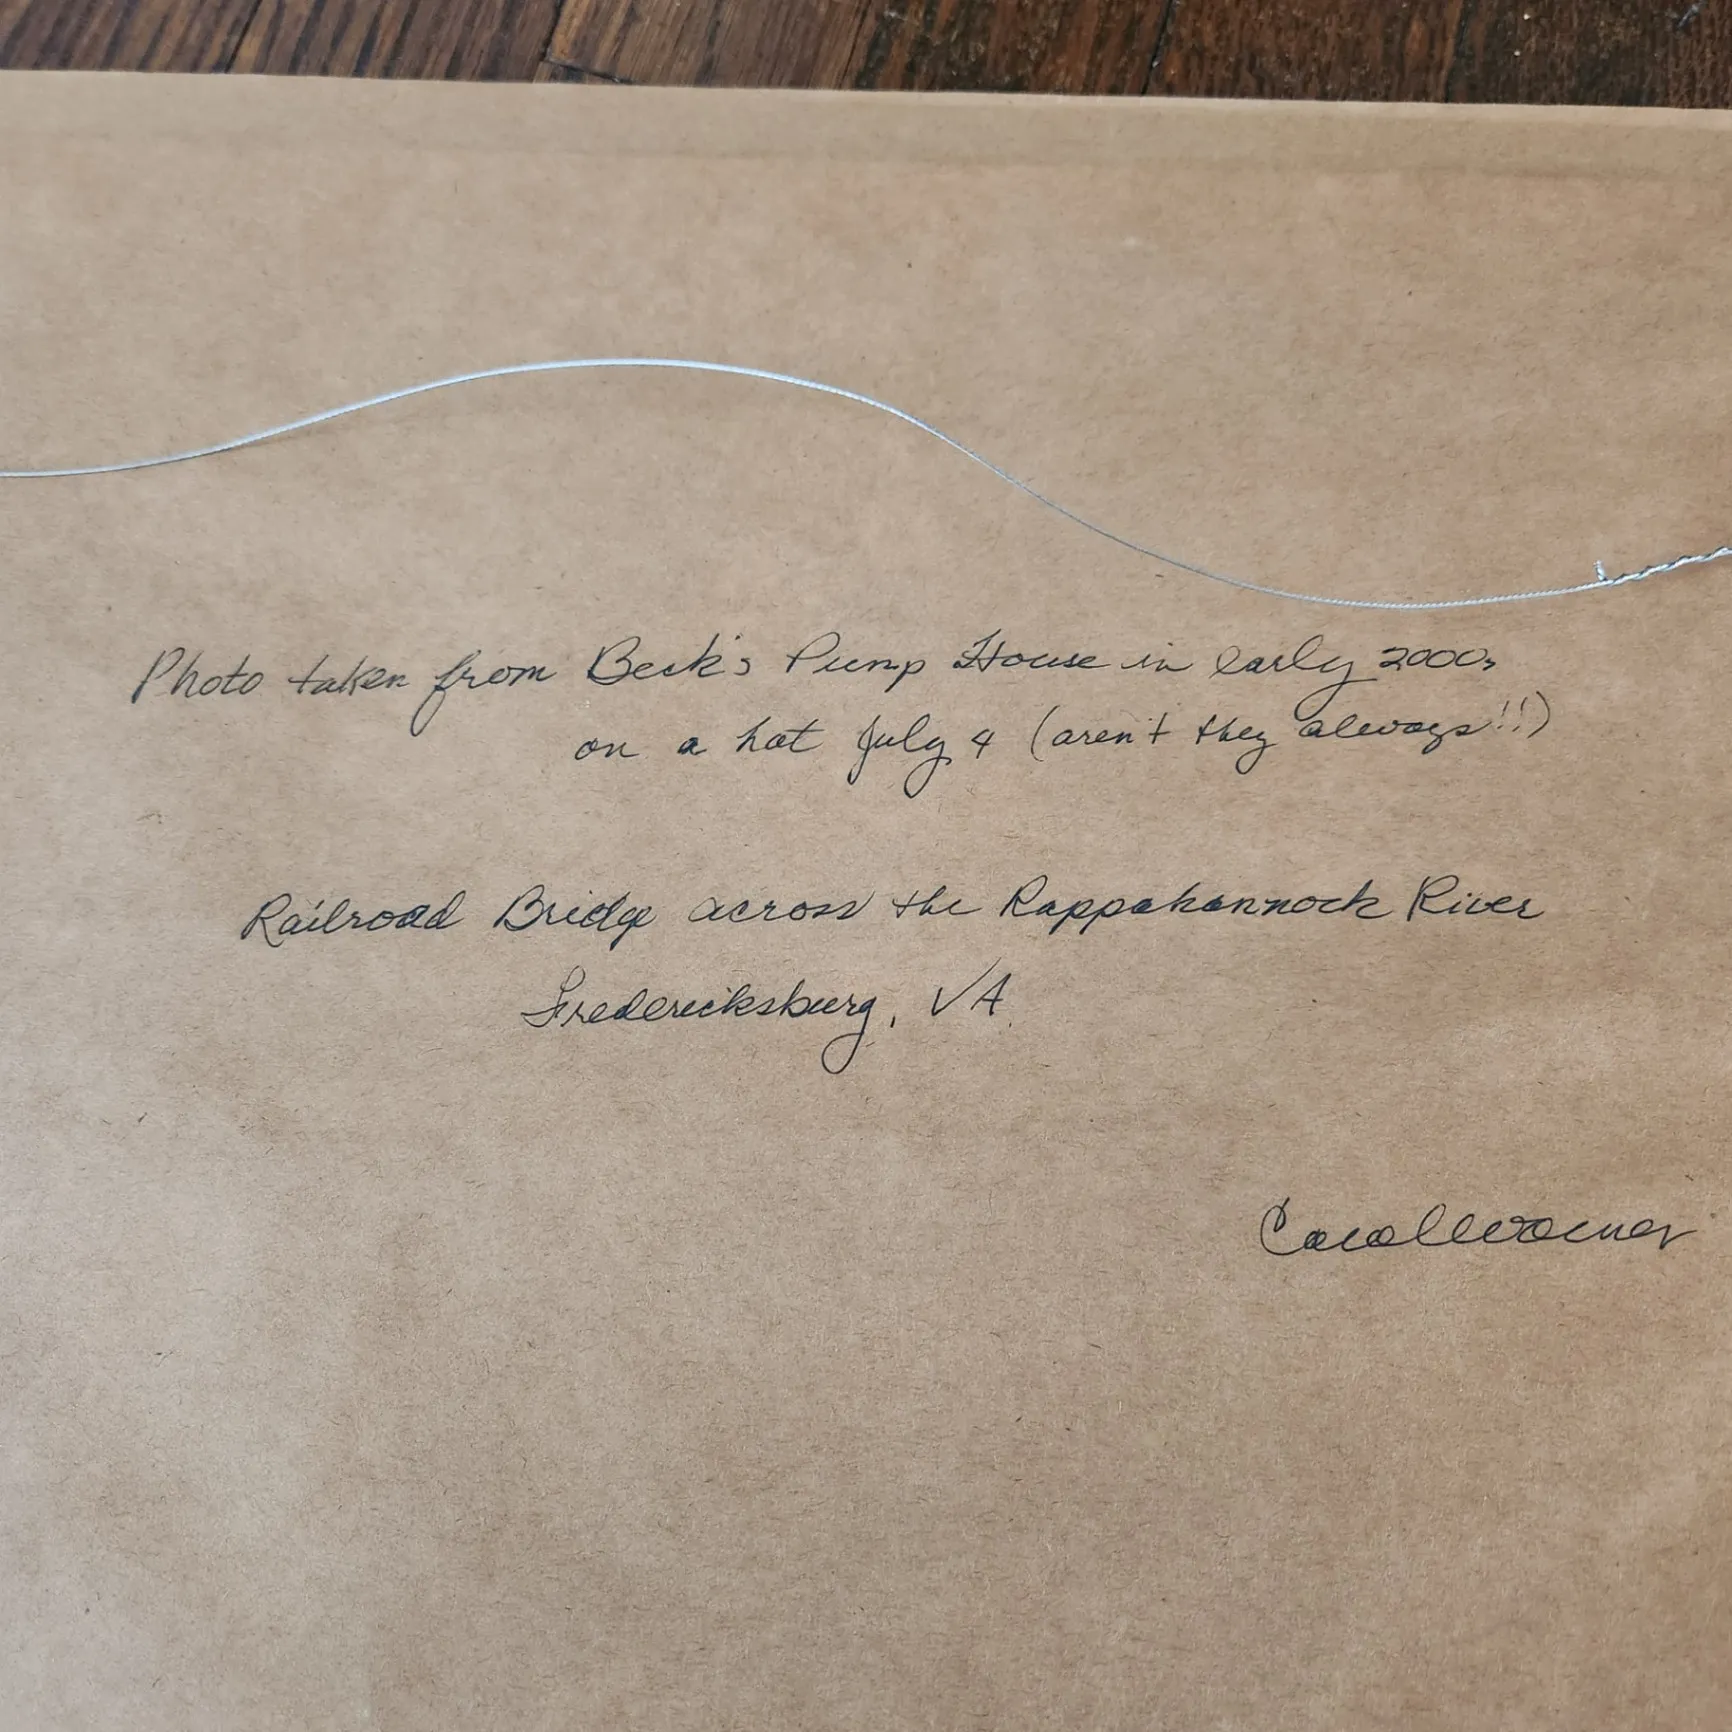 Photo taken from Beck's Pump House in early 2000s
on a hot July 4 (aren't they always!!)
Railroad Bridge across the Rappahannock River
Fredericksburg, VA.
Carol Warner